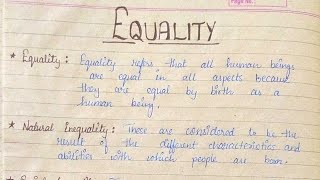 Page No.
EQUALITY
* Equality : Equality refers that all human beings
are equal in all aspects because
they are equal by birth as a
human being.
* Natural Inequality : These are considered to be the
result of the different characteristics and
abilities with which people are born.